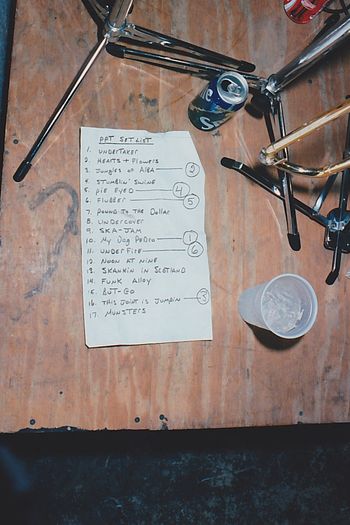 PPT SET LIST
1. UNDERTAKER
2. HEARTS + FLOWERS
3. JUNGLES OF ALBA 2
4. STUMBLIN' SWINE
5. PIE EYED 4
6. FLUBBER 5
7. POUND TO THE DOLLAR
8. UNDERCOVER
9. SKA-JAM
10. MY DOG PEDRO 1
11. UNDER FIRE 6
12. NOON AT NINE
13. SKANKIN IN SCOTLAND
14. FUNK ALLOY
15. BJT-GO
16. THIS JOINT IS JUMPIN 3
17. MUNSTERS